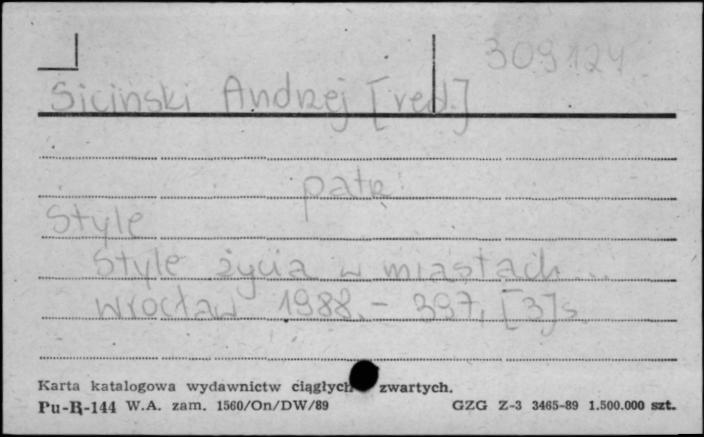 309124
Siciński Andrzej [red.]
patrz
Style
Style życia w miastach...
Wrocław 1988. - 397, [3]s.
Karta katalogowa wydawnictw ciągłych zwartych.
Pu-B-144 W.A. zam. 1560/On/DW/89 GZG Z-3 3465-89 1.500.000 szt.